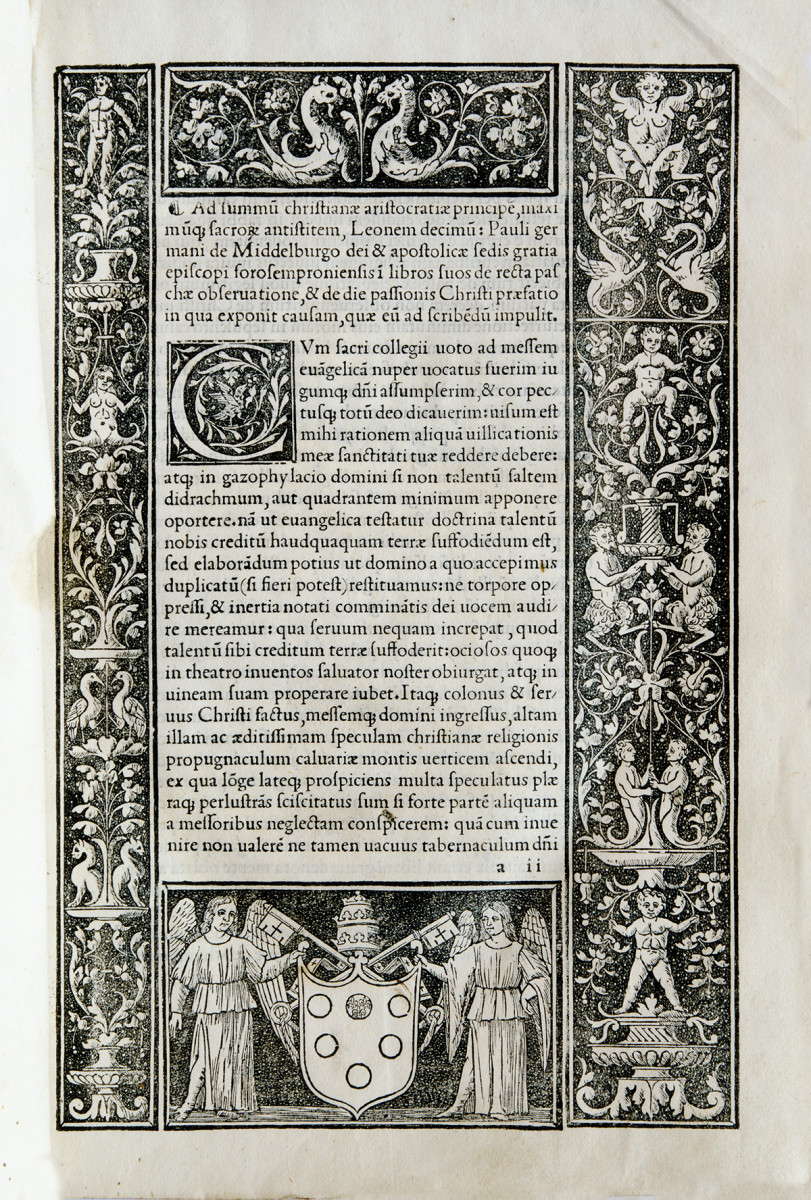 ☾ Ad ſummū chriſtianæ ariſtocratiæ principē, maxi
mūq; ſacroꝝ antiſtitem, Leonem decimū: Pauli ger
mani de Middelburgo dei & apoſtolicæ ſedis gratia
epiſcopi foroſempronienſis ī libros ſuos de recta paſ
chæ obſeruatione, & de die paſſionis Chriſti præfatio
in qua exponit cauſam, quæ eū ad ſcribēdū impulit.
CVm ſacri collegii uoto ad meſſem
euāgelicā nuper uocatus fuerim iu
gumq; dñi aſſumpſerim, & cor pec⸗
tuſq; totū deo dicauerim: uiſum eſt
mihi rationem aliquā uillicationis
meæ ſanctitati tuæ reddere debere:
atq; in gazophylacio domini ſi non talentū ſaltem
didrachmum, aut quadrantem minimum apponere
oportere. nā ut euangelica teſtatur doctrina talentū
nobis creditū haudquaquam terræ ſuffodiēdum eſt,
ſed elaborādum potius ut domino a quo accepimus
duplicatū (ſi fieri poteſt) reſtituamus: ne torpore op⸗
preſſi, & inertia notati comminātis dei uocem audi⸗
re mereamur: qua ſeruum nequam increpat, quod
talentū ſibi creditum terræ ſuffoderit: ocioſos quoq;
in theatro inuentos ſaluator noſter obiurgat, atq; in
uineam ſuam properare iubet. Itaq; colonus & ſer⸗
uus Chriſti factus, meſſemq; domini ingreſſus, altam
illam ac æditiſſimam ſpeculam chriſtianæ religionis
propugnaculum caluariæ montis uerticem aſcendi,
ex qua lōge lateq; proſpiciens multa ſpeculatus plæ
raq; perluſtrās ſciſcitatus ſum ſi forte partē aliquam
a meſſoribus neglectam conſpicerem: quā cum inue
nire non ualerē ne tamen uacuus tabernaculum dñi
a ii